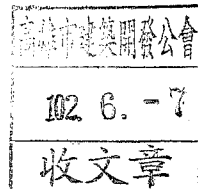 高雄市建築開發公會
102. 6. -7
收文章